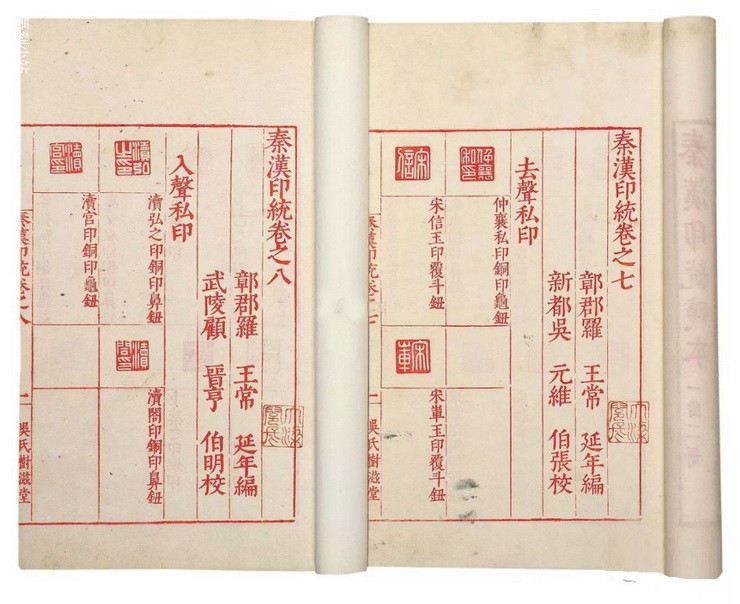 秦漢印統卷之七
鄣郡羅 王常 延年編
新都吳 元維 伯張校
去聲私印
仲襄私印銅印龜鈕
宋信
宋信玉印覆斗鈕
玉印覆斗鈕
秦漢印統卷之七
一 吳氏樹滋堂
秦漢印統卷之八
鄣郡羅 王常 延年編
武陵顧 晉亨 伯明校
入聲私印
瀆弘之印銅印鼻鈕
瀆閤印銅印鼻鈕
瀆宮印銅印龜鈕
秦漢印統卷之八
一 吳氏樹滋堂